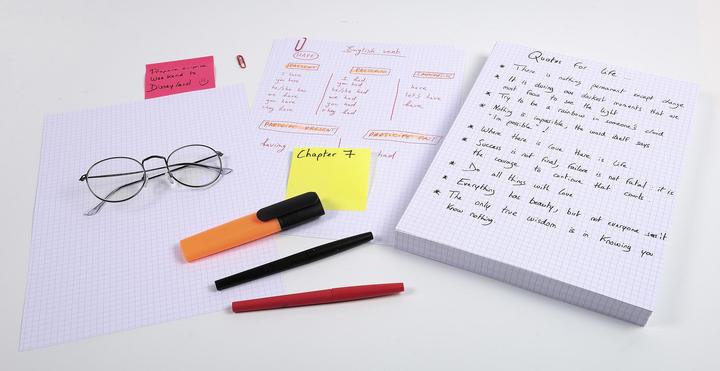 Prepare surprise
Weekend to
Disneyland
HAVE
English verb
PRESENT
I have
you have
he/she has
we have
you have
they have
PRETERITE
I had
you had
he/she had
we had
you had
they had
IMPERATIVE
have
let's have
have
PARTICIPE PRESENT
having
PARTICIPE PAST
had
Chapter 7
Quotes For life...
* There is nothing permanent except change
* It is during our darkest moments that we
must focus to see the light
* Try to be a rainbow in someone's cloud
* Nothing is impossible, the word itself says
"im possible"!
* Where there is love there is life
* Success is not final, failure is not fatal: it is
the courage to continue that counts
* Do all things with love
* Everything has beauty, but not everyone sees it
* The only true wisdom is in Knowing you
Know nothing.